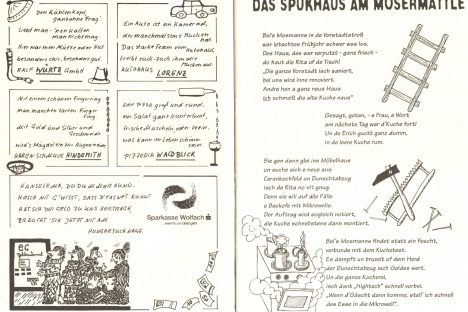 Den Kühlen Kopf,
ganz ohne Frag'
Liebt man
hier warmen Hütte oder Hut
besonders chic, besonders gut.
RALF WÜRTZ GmbH
Ein Auto ist ein Kamerad,
der manchmal seine Mucken hat.
Das starke Team vom Autohaus
treibt ruck-zuck ihm die Mucken aus.
AUTOHAUS LORENZ
Mit einem schönen Fingerring
man machen zarten Finger
mit Gold und Silber und
wird's Mägdlein
HINDEMITH
Der Pizza groß und rund,
ein Salat ganz kunterbunt,
frische Muscheln oder Wein,
was kann im Leben schöner
sein.
PIZZERIA WALDBLICK
HANSELE MA, DU DUMMER HUND,
HOSCH NIT G'WISST, DASS D'FASNET KUNNT
HÄTSCH DU GELD ZU UNS
BRÄUCHT 'SCH JETZT NIT AM
Sparkasse Wolfach
...wenn's um Geld geht
ec
DAS SPUKHAUS AM MOSERMÄTTLE
Bei's Moemanns in de Vorstadtstroß
war letschtes Frühjohr schwer was los.
Des Haus, des war verputzt - ganz frisch -
do haut die Rita uf de Tisch!
"Die ganze Vorstadt isch saniert,
bei uns wird inne renoviert.
Andre hen a ganz neus Haus
ich schmeiß die alte Kuche naus"
Gesagt, getan, - e Frau, e Wort
am nächste Tag war d'Kuche fort!
Un de Erich guckt ganz dumm,
in de leere Kuche rum.
Sie gen dann glei ins Möbelhaus
un euche sich e neue aus.
Cerankochfeld un Dunschtabzug
isch de Rita no nit gnug.
Denn sie will auf alle Fälle
e Backofe mit Mikrowelle.
Der Auftrag wird sogleich notiert,
die Kuche schnellstens dann montiert.
Bei's Moemanns findet statt ein Fescht,
verbunde mit dem Kuchetest.
Es dampft un brutzelt uf dem Herd
der Dunschtabzug isch Goldes wert.
Un die ganze Kocherei,
isch dank "Hightech" schnell vorbei.
"Wenn d'Gäscht dann komme, stell ich schnell
des Esse in die Mikrowell".